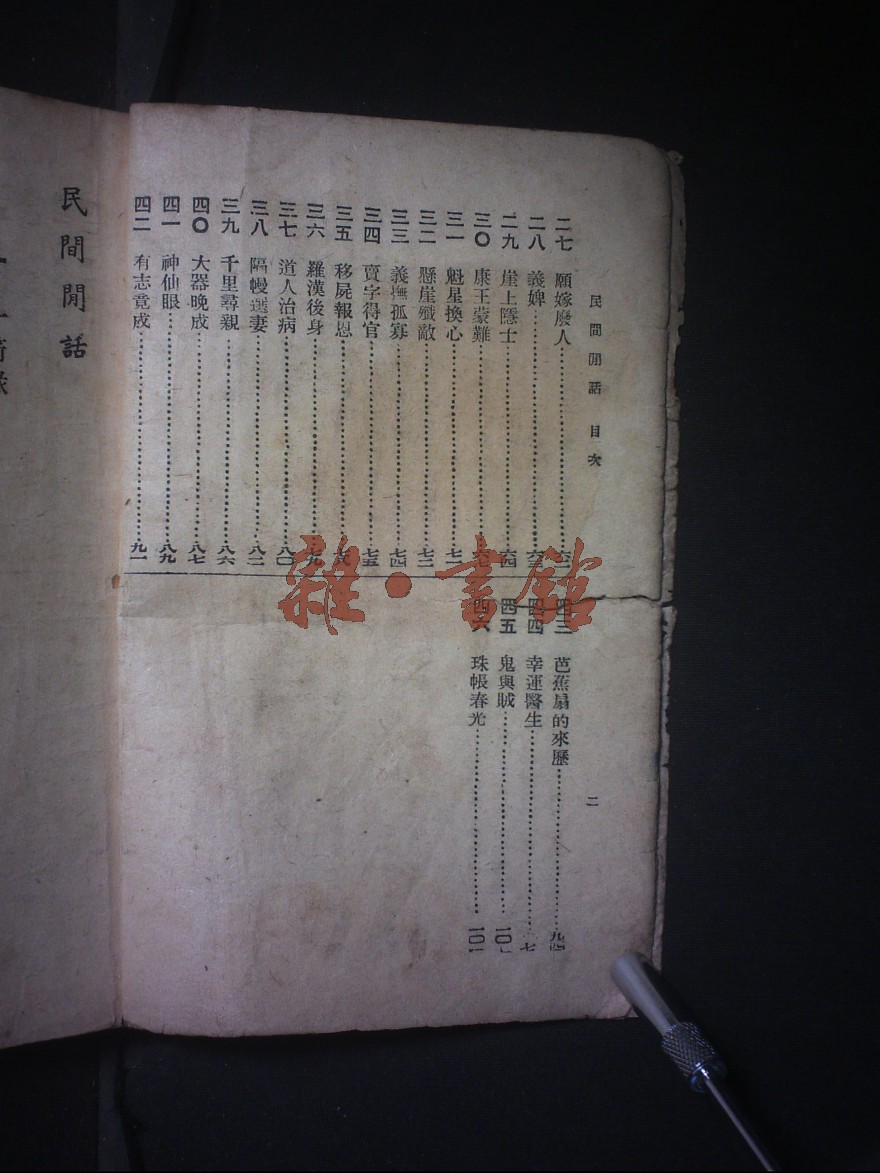 民間閒話 目次
二
二七 願嫁廢人
二八 義婢
二九 崖上隱士 六四
三〇 康王蒙難
三一 魁星換心
三二 懸崖殲敵 七三
三三 義撫孤寡 七四
三四 賣字得官 七五
三五 移屍報恩
三六 羅漢後身 七九
三七 道人治病 八〇
三八 隔幔選妻
三九 千里尋親 八六
四〇 大器晚成 八七
四一 神仙眼 八九
四二 有志竟成 九一
四三 芭蕉扇的來歷 九四
四四 幸運醫生
四五 鬼與賊
四六 珠帳春光
民間閒話
雜·書館